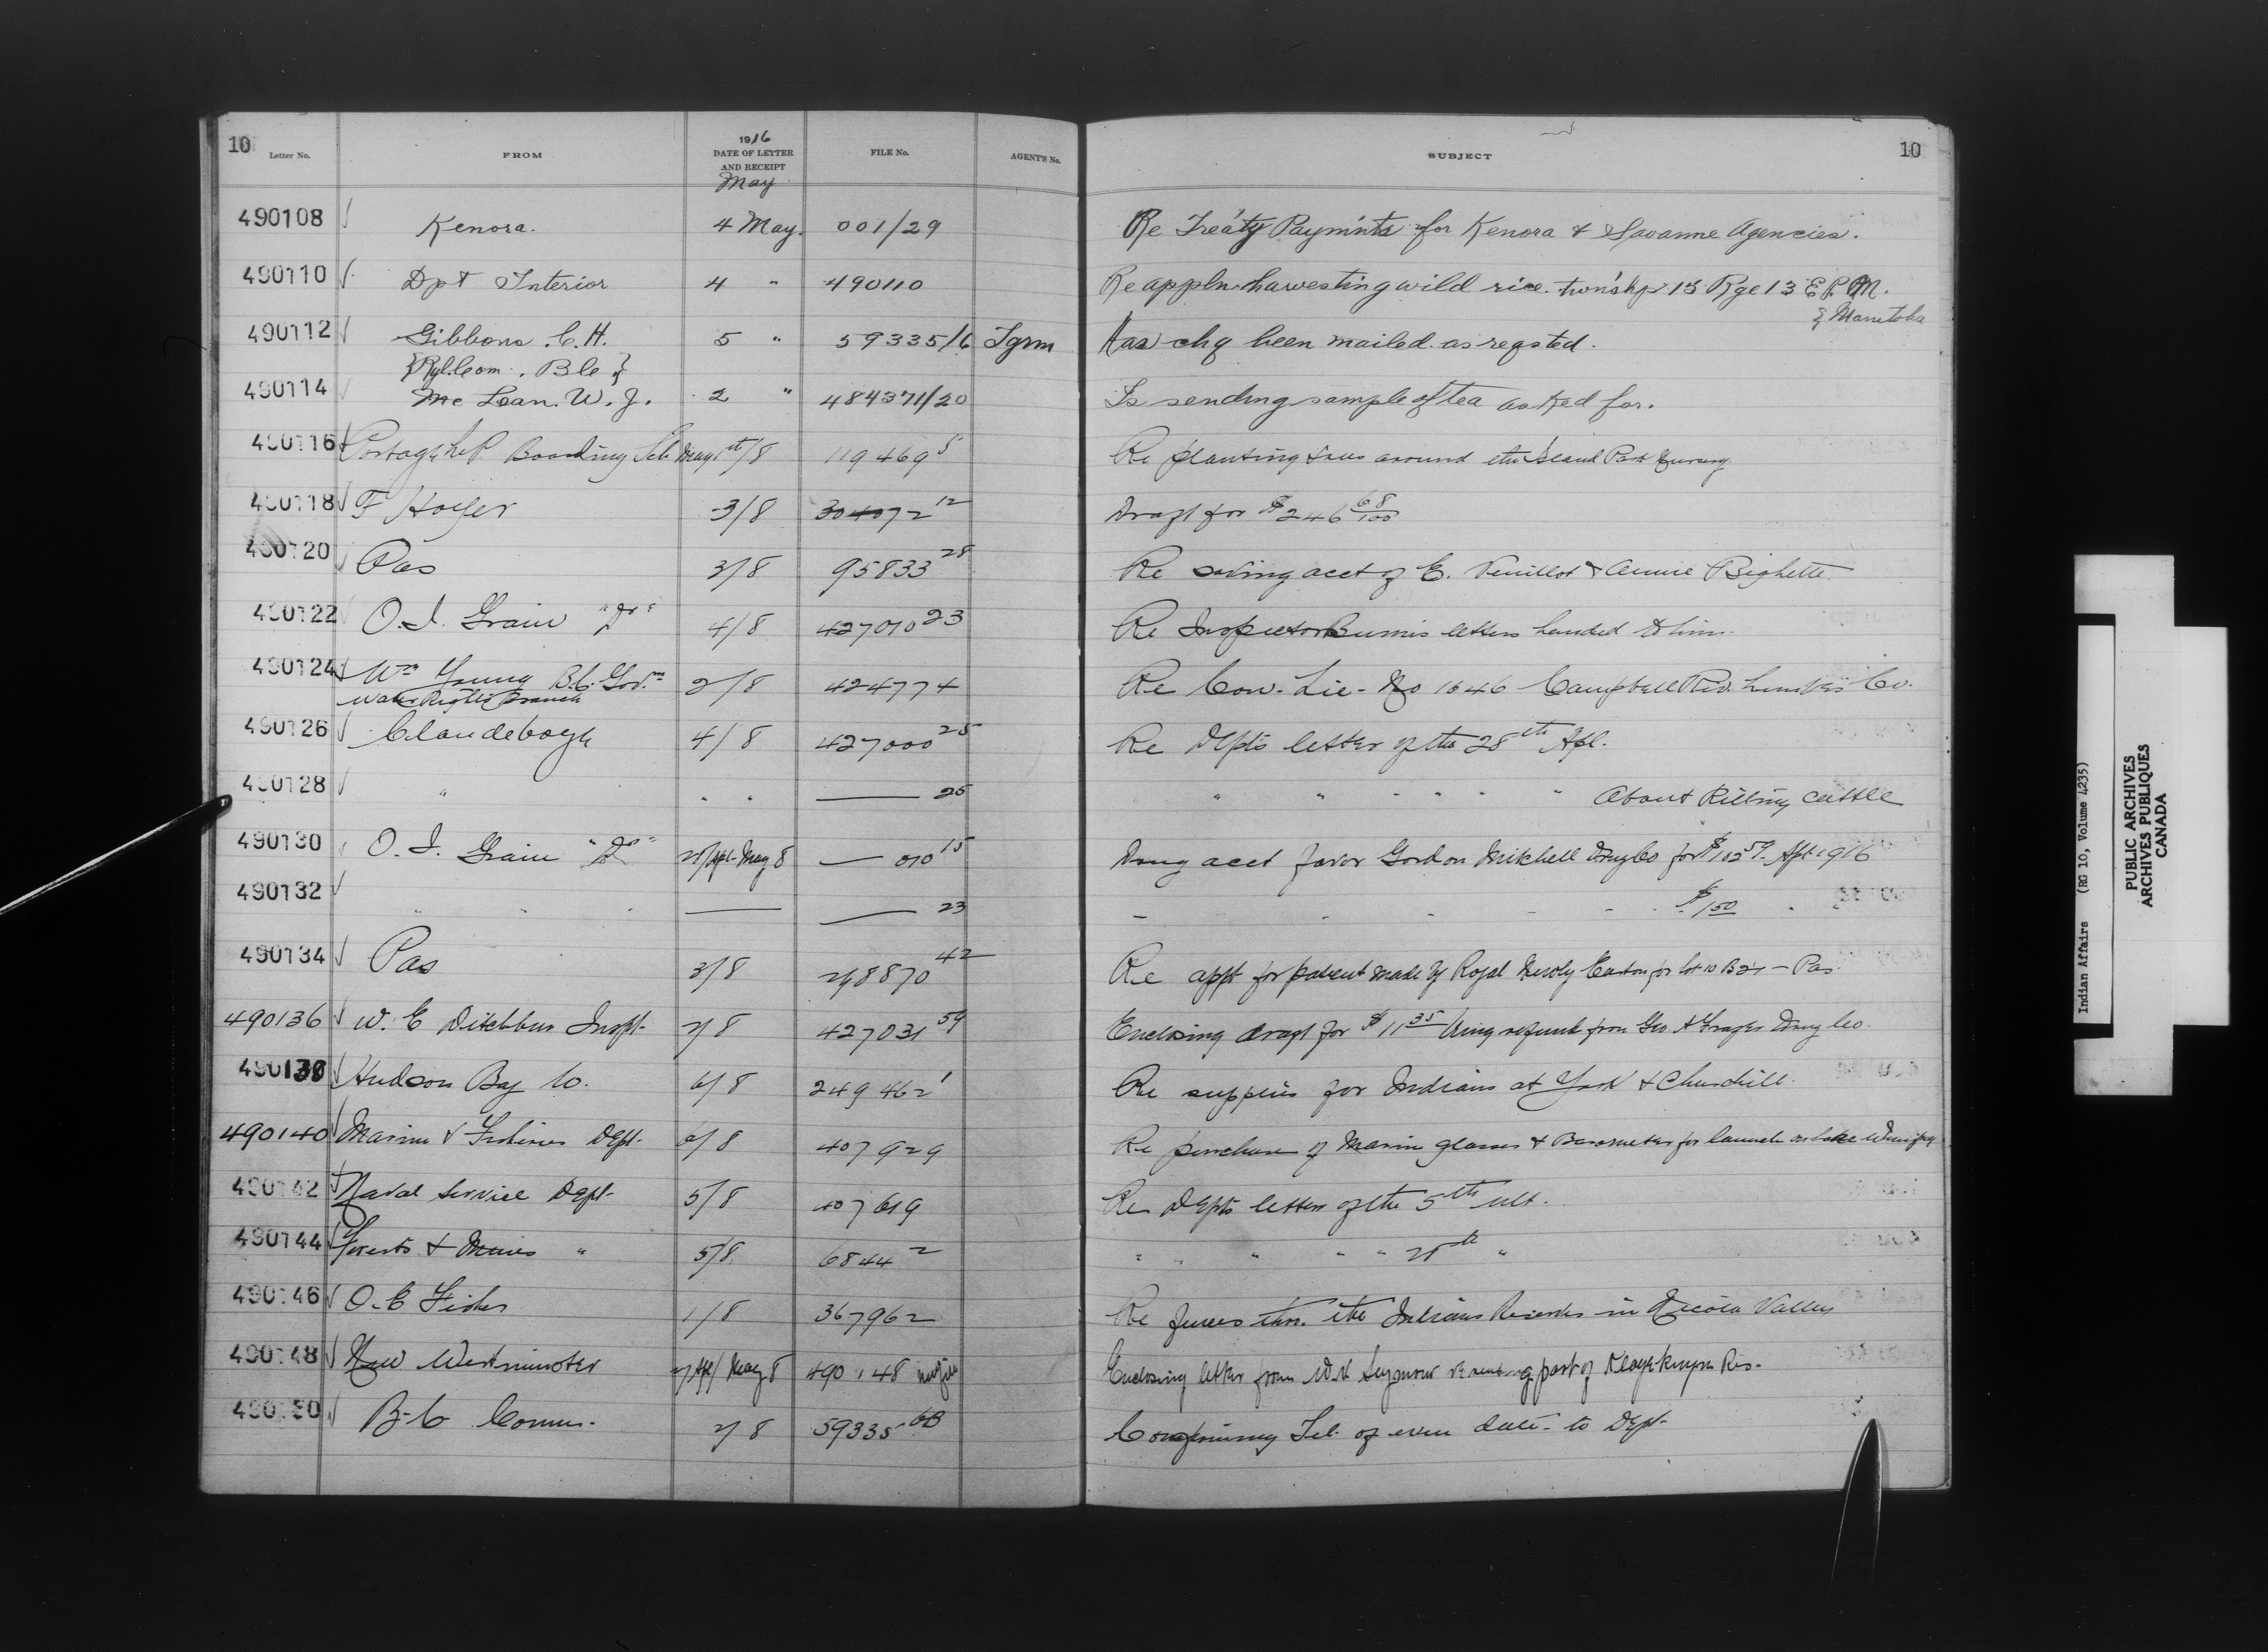 10
Letter No. FROM 1916 DATE OF LETTER AND RECEIPT May FILE No. AGENT'S No. SUBJECT
10
490108 Kenora. 4 May. 001/29 Re Treaty Paym'nts for Kenora & Savanne Agencies.
490110 Dpt Interior 4 " 490110 Re appln. harvesting wild rice. town'shp 15 Rge 13 E.P.M.
} Manitoba
490112 Gibbons. C.H. 5 " 59335/6 Tgrm Has chq been mailed as reqsted.
{Ryl. Com. B C}
490114 Mc Lean. W. J. 2 " 484371/20 Is sending sample of tea asked for.
490116 Portage la P. Boarding Sch May 1st/8 119469 5 Re planting trees around the Island Park
490118 F 3/8 304072 12 Draft for $246 68/100
490120 Pas 3/8 95833 28 Re saving acct of E. Veuillot & Annie Bighette
490122 O. I. Grain "Dr" 4/8 427010 23 Re Inspector Bunn's letters handed to him.
490124 Wm Young B.C. Gov.mt 2/8 424774 Re Con. Lic- No 1646 Campbell Riv. Lumber Co.
Water Rights Branch
490126 Clandeboye 4/8 427000 25 Re Dept's letter of the 28th Apl.
490128 " " " —— 25 " " " " " " About killing cattle
490130 O. I. Grain "Dr" Apl- May 8 — 010 15 Drug acct favor Gordon Mitchell Drug Co for $102 59 Apl 1916
490132 " " " —— —— 23 " " " " " $1 50 " "
490134 Pas 3/8 42 Re appt for patent made by Royal Easton for lot 10 B 21 - Pas
490136 W. E Ditchburn Inspt- 2/8 427031 59 Enclosing draft for $11 35 being refund from Geo A Fraser Drug Co.
490138 Hudson Bay Co. 6/8 249462 1 Re supplies for Indians at York & Churchill
490140 Marine & Fisheries Dept- 6/8 407929 Re purchase of Marine glasses & Barometer for launch on Lake Winnipeg
490142 Naval Service Dept- 5/8 407619 Re Depts letter of the 5th ult.
490144 Forests & Mines " 5/8 6844 2 " " " " th "
490146 O. C 1/8 367962 Re fences thro. the Indians Reserves in Nicola Valley
490148 New Westminster Apl/ May 8 490148 new file Enclosing letter from Seymour part of Res.
490150 B-C Comm- 2/8 59335 6B Confirming Tel. of even date- to Dept-
Indian Affairs (RG 10, Volume 4235)
PUBLIC ARCHIVES
ARCHIVES PUBLIQUES
CANADA